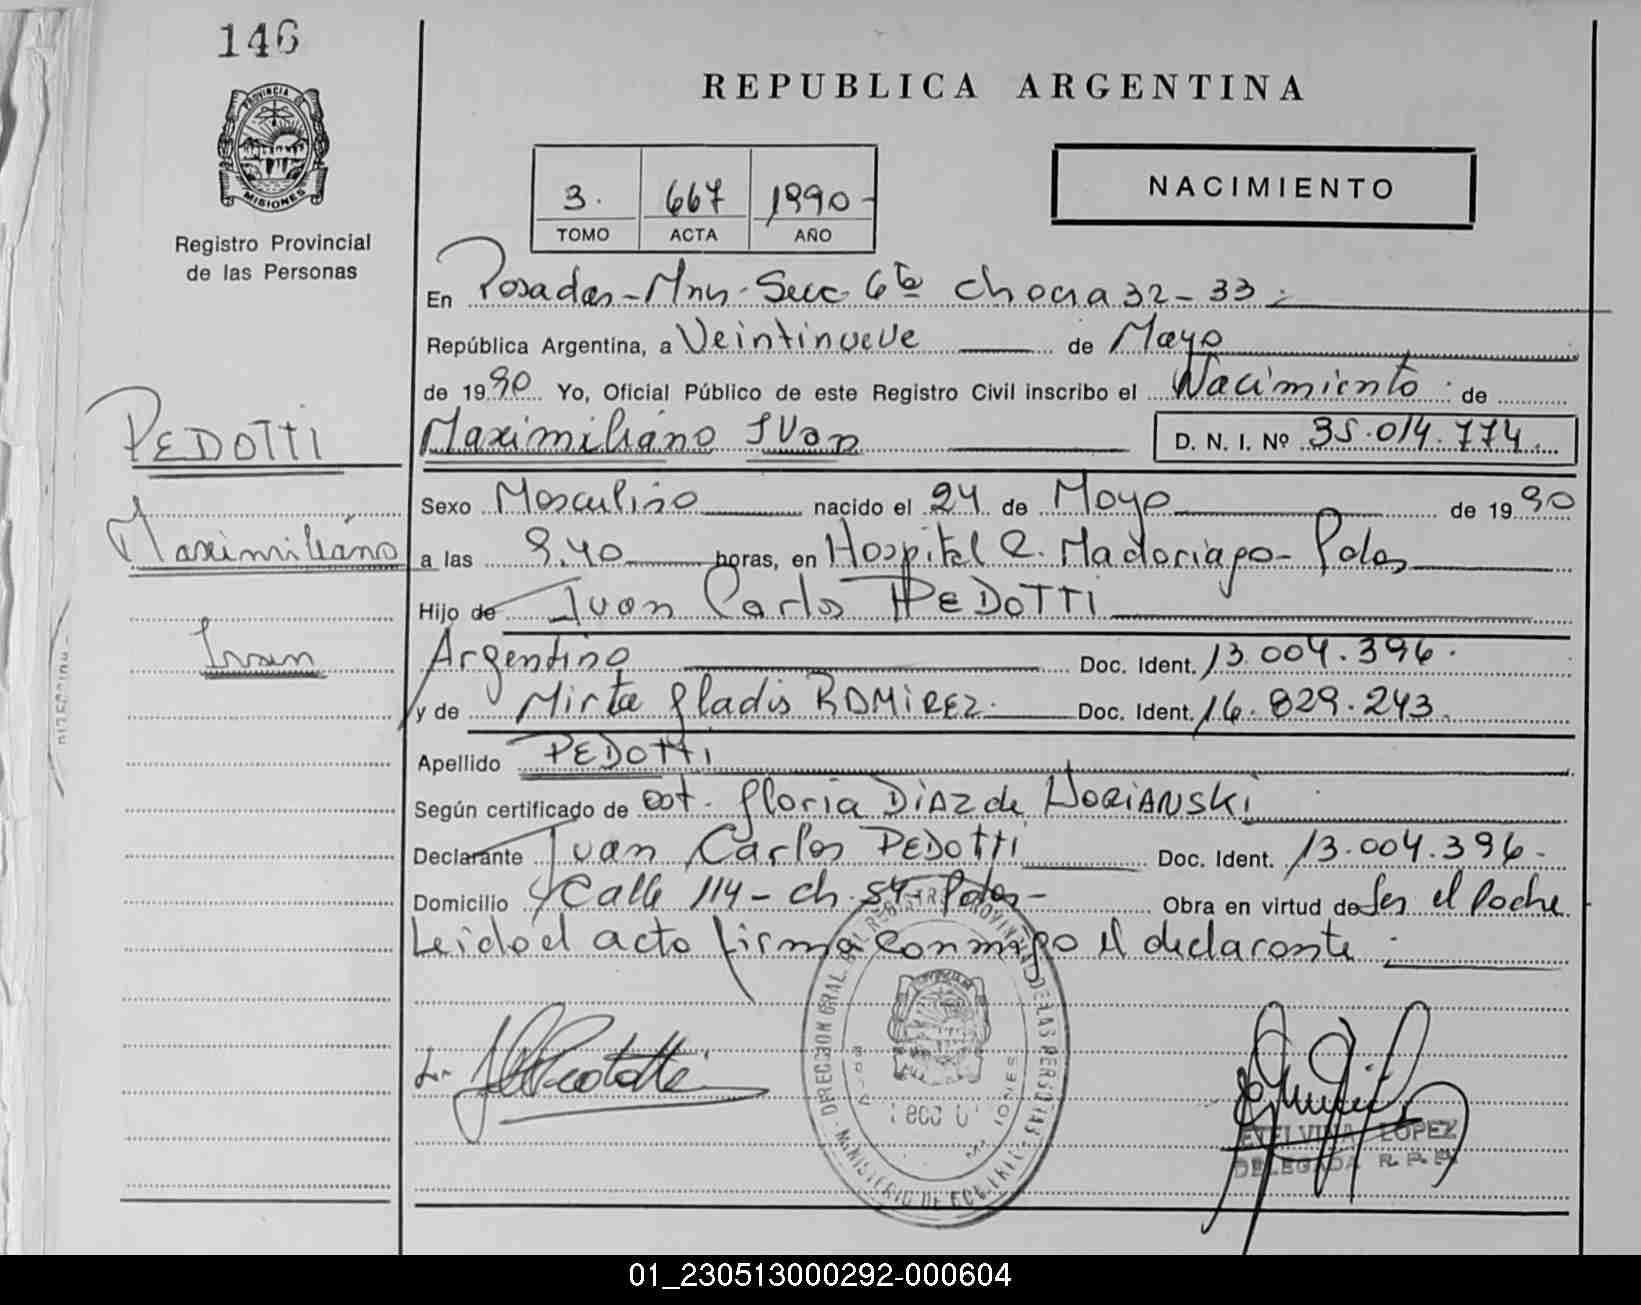 146
REPUBLICA ARGENTINA
PROVINCIA DE
MISIONES
Registro Provincial
de las Personas
3. 667 1990-
TOMO ACTA AÑO
NACIMIENTO
En Posadas-Mns-Secc 6ta chacra 32-33
República Argentina, a Veintinueve de Mayo
de 1990 Yo, Oficial Público de este Registro Civil inscribo el Nacimiento de
PEDOTTI
Maximiliano Ivan D. N. I. Nº 35.014.774
Sexo Masculino nacido el 24 de Mayo de 1990
Maximiliano
a las 9.40 horas, en Hospital R. Madariaga-Pdas
Hijo de Juan Carlos PEDOTTI
Ivan
Argentino Doc. Ident. 13.004.396.
y de Mirta Gladis RAMIREZ. Doc. Ident. 16.829.243.
Apellido PEDOTTI
Según certificado de Obt. Gloria DIAZ de WORIANSKI
Declarante Juan Carlos PEDOTTI Doc. Ident. 13.004.396-
Domicilio Calle 114- ch. 54- Pdas- Obra en virtud de Ser el Padre
Leido el acto firma conmigo el declarante
DIRECCION GRAL. DEL REGISTRO PROVINCIAL DE LAS PERSONAS
MINISTERIO DE
ETELVINA LOPEZ
DELEGADA R. P. P.
01_230513000292-000604